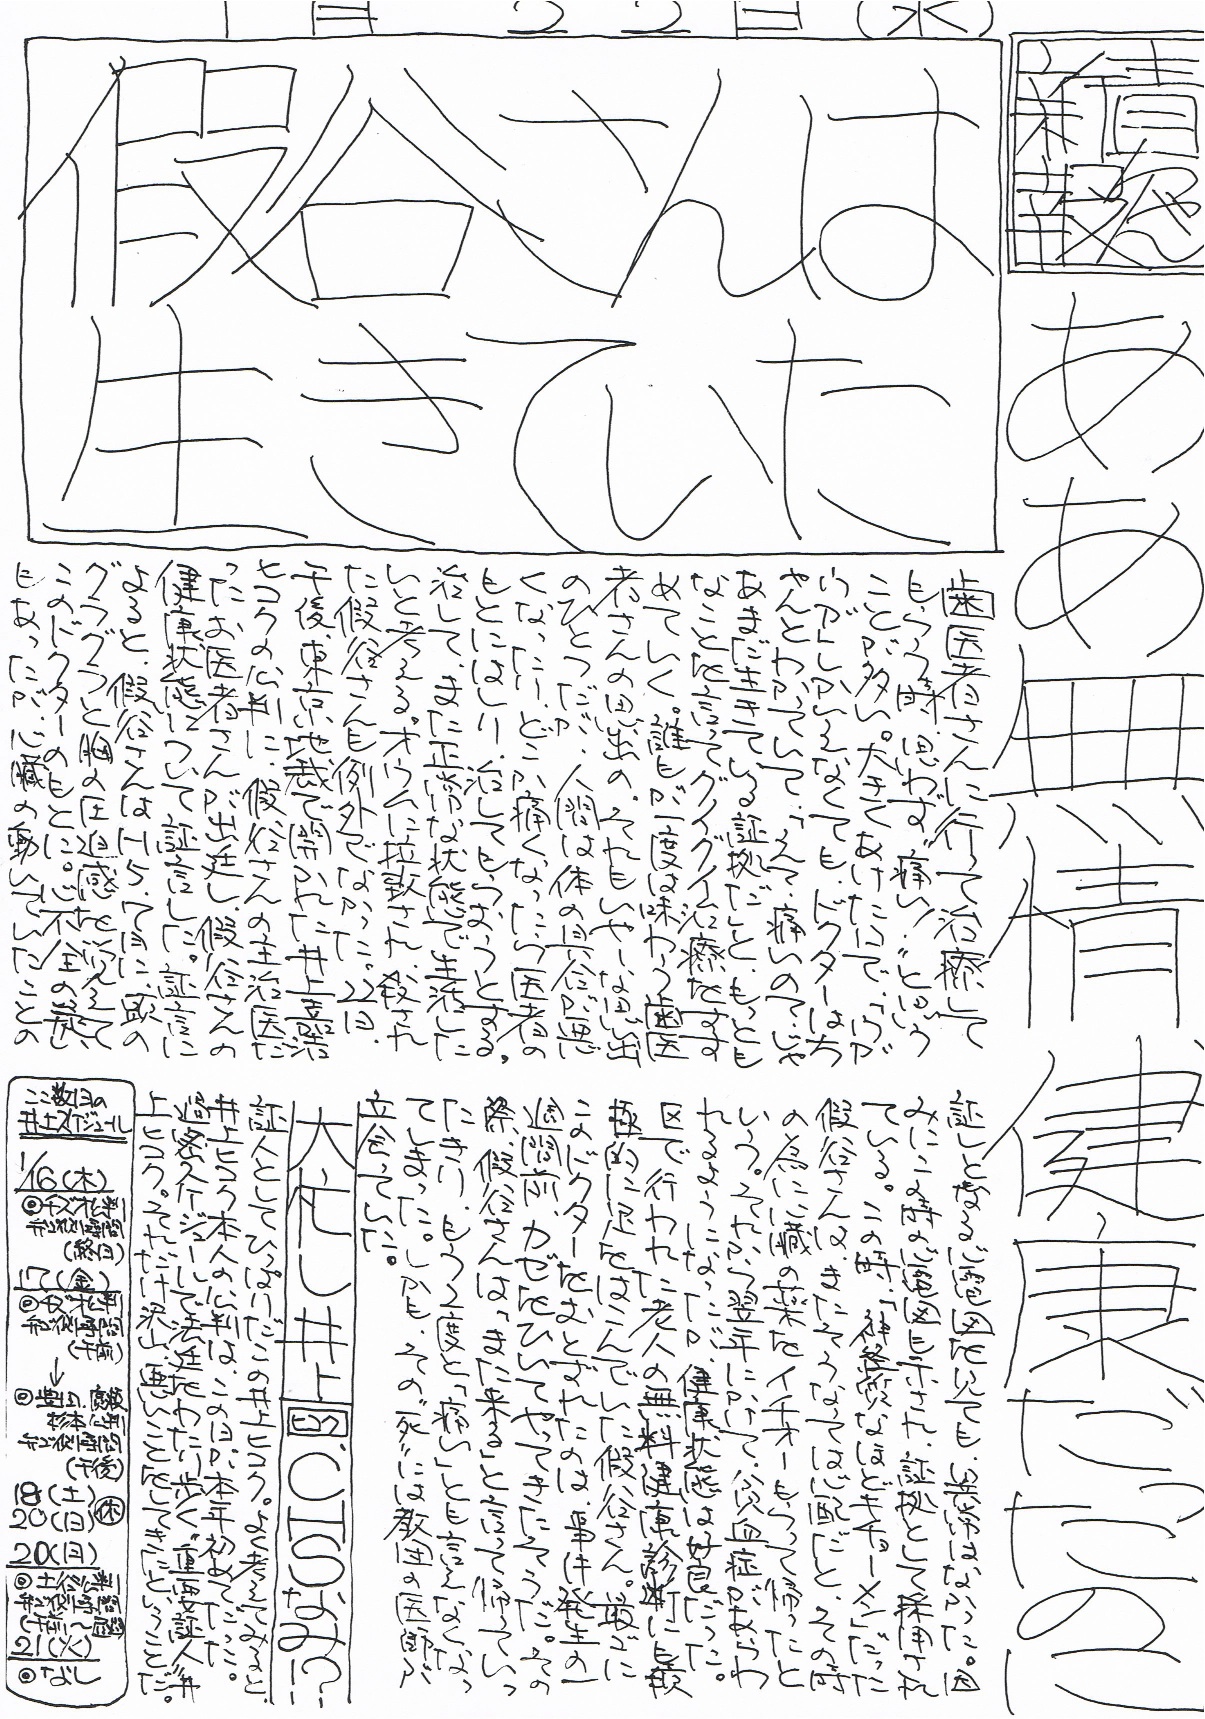 1月22日(水)
新報
假谷さんは
生きていた
ああ無情 健康だったのに
歯医者さんに行って治療して
もらう時、思わず“痛い!”と思う
ことが多い。大きくあけた口で、「ワガ
ワガ」しかいえなくても、ドクターはち
ゃんとわかっていて、「えー、痛いの?じゃ
あまだ生きている証拠だ」と、もっとも
なことを言ってグイグイ治療をすす
めていく。誰もが一度は味わう歯医
者さんの思い出の、それもいや〜な思い出
のひとつだが、人間は体の具合が悪
くなったり、どこか痛くなったら医者の
もとにはしり、治してもらおうとする。
治して、また正常な状態で生活した
いと考える。オウムに拉致され、殺され
た假谷さんも例外でなかった。22日、
午後、東京地裁で開かれた井上嘉浩
ヒコクの公判に、假谷さんの主治医だ
ったお医者さんが出廷し、假谷さんの
健康状態について証言した。証言に
よると、假谷さんはH5.7月に、頭の
グラグラと胸の圧迫感を訴えて
このドクターのもとに。心不全の兆し
もあったが、心臓の動いていたことの
証しとなる心電図を見ても、異常はなかった。因
みにこの時の心電図も示され、証拠として採用され
ている。この時、「神経質なほどキチョーメン」だった
假谷さんは、またそうなっては心配だと、その時
の為に心臓の薬をイチオーもらって帰ったと
いう。それから翌年にかけて、貧血症があらわ
れるようになったが、健康状態は好良だった。
区で行われた老人の無料健康診断に積
極的に足をはこんでいた假谷さん。最ゴに
このドクターをおとずれたのは、事件発生の一
週間前、カゼをひいてやってきたそうだ。その
際、假谷さんは「また来る」と言って帰っていっ
たきり、もう2度と「痛い」とも言えなくなっ
てしまった。しかも、その“死”には教団の医師が
立会っていた。
大忙し井上ヒコク、CISなみ?!
証人としてひっぱりだこの井上ヒコク。よく考えてみると、
井上ヒコク本人の公判は、この日が本年初めてだった。
過密スケジュールで法廷をわたり歩く“重要証人”井
上ヒコク。それだけ沢山、悪いことをしてきたということだ。
ここ数日の
井上スケジュール
1/16(木)
(終日)
17(金)
(午前)
↓
(午後)
18(土)
20(日)
休
20(月)
21(火)
◎なし